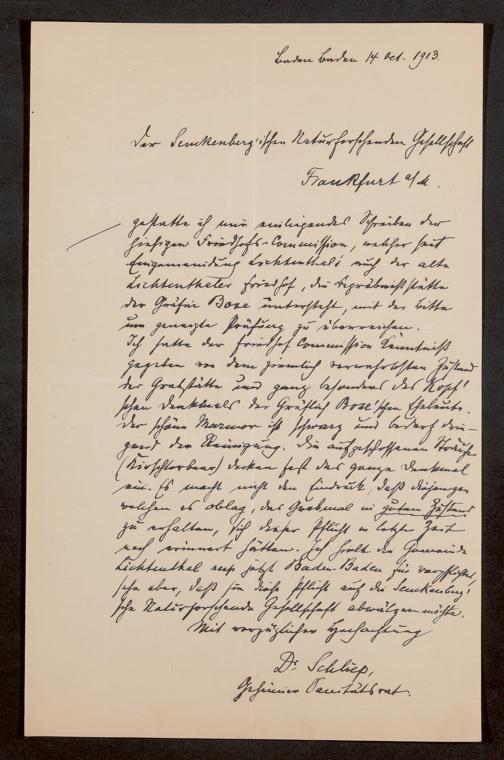 Baden Baden 14 Oct. 1913.
Der Senckenberg'ischen Naturforschenden Gesellschaft
Frankfurt a/M.
gestatte ich mir einliegendes Schreiben der
hiesigen Friedhofs-Commission, welcher seit
Eingemeindung Lichtenthals auch der alte
Lichtenthaler Friedhof, die Begräbnißstätte
der Gräfin Bose untersteht, mit der Bitte
um geneigte Prüfung zu überreichen.
Ich hatte der Friedhof Commission Kenntniß
gegeben von dem ziemlich verwahrlosten Zustand
der Grabstätte und ganz besonders des Kopf'
schen Denkmals der Gräflich Bose'schen Eheleute.
Der schöne Marmor ist schwarz und bedarf drin-
gend der Reinigung. Die aufgeschossenen Sträucher
(Kirschlorbeer) decken fast das ganze Denkmal
ein. Es macht nicht den Eindruck, daß diejenigen
welchen es oblag, das Grabmal in gutem Zustand
zu erhalten, sich dieser Pflicht in letzter Zeit
noch erinnert hätten. Ich hielt die Gemeinde
Lichtenthal resp jetzt Baden-Baden für verpflichtet,
sehe aber, daß sie diese Pflicht auf die Senckenberg'
sche Naturforschende Gesellschaft abwälzen möchte.
Mit vorzüglicher Hochachtung
Dr. Schliep,
Geheimer Sanitätsrat.